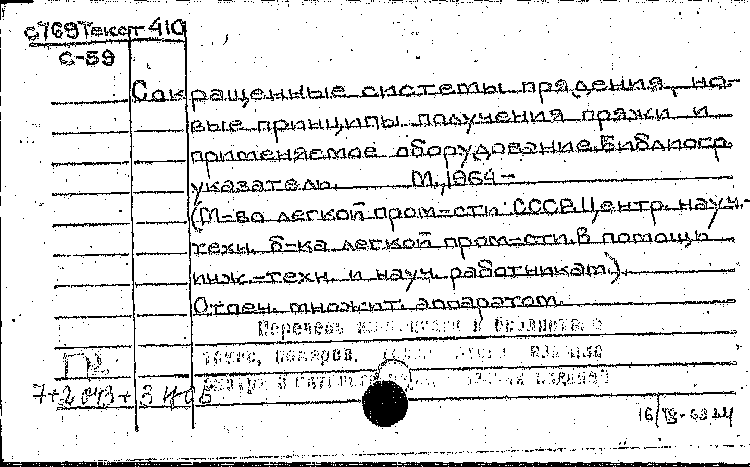 с769Текст 410
С-59
Сокращенные системы прядения, но-
вые принципы получения пряжи и
применяемое оборудование. Библиогр.
указатель. М., 1964 -
(М-во легкой пром-сти СССР. Центр. науч.-
техн. б-ка легкой пром-сти. В помощь
инж.-техн. и науч. работникам).
Отпеч. множит. аппаратом.
Перечень
томов, номеров,